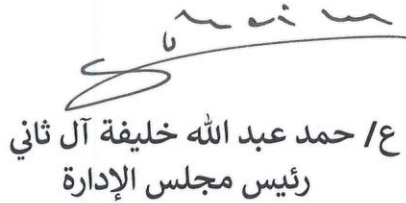 ع/ حمد عبد الله خليفة آل ثاني
رئيس مجلس الإدارة